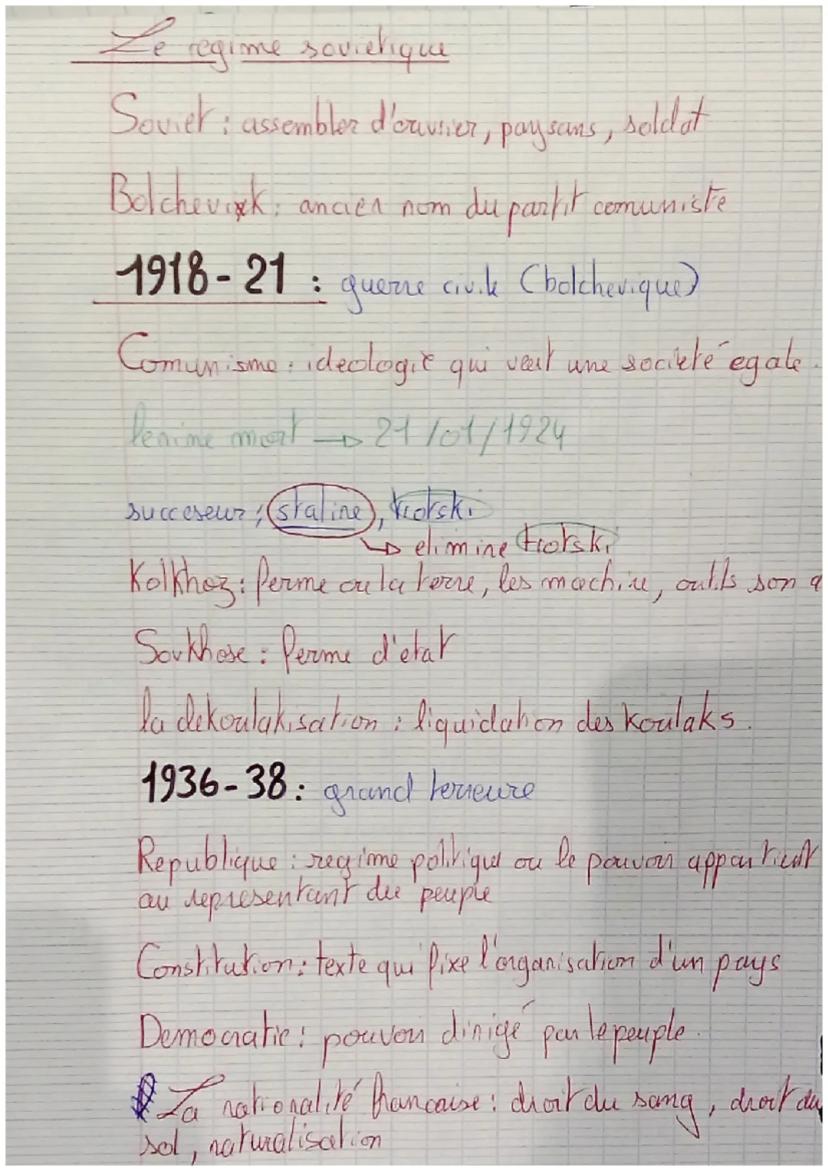 Le regime sovietique
Soviet : assembler d'ouvrier, paysans, soldat
Bolchevik : ancien nom du partit comuniste
1918-21 : guerre civile (bolchevique)
Comunisme : ideologie qui veut une societé egale.
lenine mort → 21/01/1924
succeseur : staline, trotski
→ elimine trotski
Kolkhoz : ferme ou la terre, les machine, outils son
Sovkhose : ferme d'etat
la dekoulakisation : liquidation des koulaks.
1936-38 : grand terreure
Republique : regime politique ou le pouvoir appartient
au representant du peuple
Constitution : texte qui fixe l'organisation d'un pays
Democratie : pouvoir dirigé par le peuple.
La nationalité francaise : droit du sang, droit du
sol, naturalisation